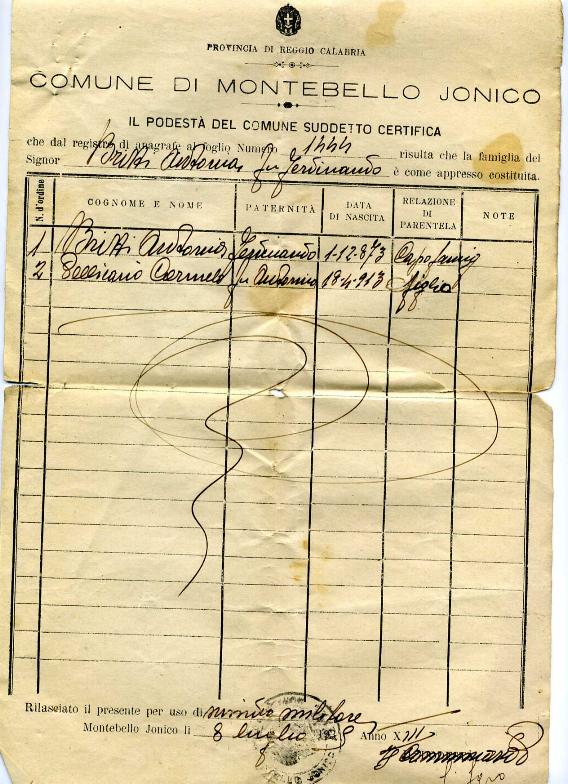 PROVINCIA DI REGGIO CALABRIA
COMUNE DI MONTEBELLO JONICO
IL PODESTÀ DEL COMUNE SUDDETTO CERTIFICA
che dal registro di anagrafe al foglio Numero 1444 risulta che la famiglia del
Signor Fu Ferdinando è come appresso costituita.
N. d'ordine COGNOME E NOME PATERNITÀ DATA DI NASCITA RELAZIONE DI PARENTELA NOTE
1 Ferdinando 1-12-873 Capo famig
2 Carmelo fu Antonino 18-4-913 figlio
Rilasciato il presente per uso di
Montebello Jonico li 8 luglio Anno XIII